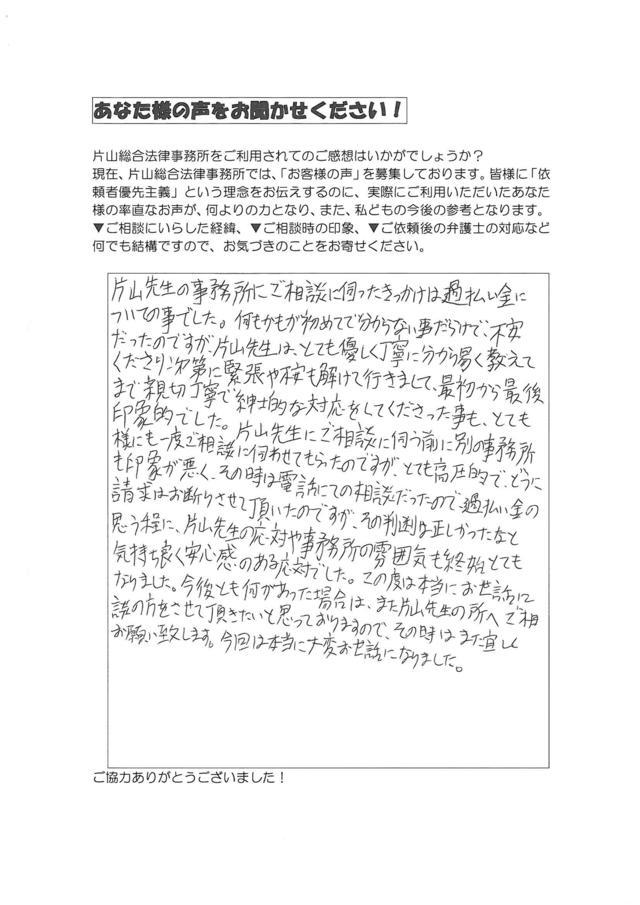 あなた様の声をお聞かせください！
片山総合法律事務所をご利用されてのご感想はいかがでしょうか？
現在、片山総合法律事務所では、「お客様の声」を募集しております。皆様に「依
頼者優先主義」という理念をお伝えするのに、実際にご利用いただいたあなた
様の率直なお声が、何よりの力となり、また、私どもの今後の参考となります。
▼ご相談にいらした経緯、▼ご相談時の印象、▼ご依頼後の弁護士の対応など
何でも結構ですので、お気づきのことをお寄せください。
片山先生の事務所にご相談に伺ったきっかけは過払い金に
ついての事でした。何もかもが初めてで分からない事だらけで、不安
だったのですが、片山先生は、とても優しく丁寧に分かり易く教えて
くださり次第に緊張や不安も解けて行きまして、最初から最後
まで親切丁寧で紳士的な対応をしてくださった事も、とても
印象的でした。片山先生にご相談に伺う前に別の事務所
様にも一度ご相談に伺わせてもらったのですが、とても高圧的で、どうに
も印象が悪く、その時は電話にての相談だったので、過払い金の
請求はお断りさせて頂いたのですが、その判断は正しかったなと
思う程に、片山先生の応対や事務所の雰囲気も終始とても
気持ち良く安心感のある応対でした。この度は本当にお世話に
なりました。今後とも何かあった場合は、また片山先生の所へご相
談の方をさせて頂きたいと思っておりますので、その時はまた宜しく
お願い致します。今回は本当に大変お世話になりました。
ご協力ありがとうございました！